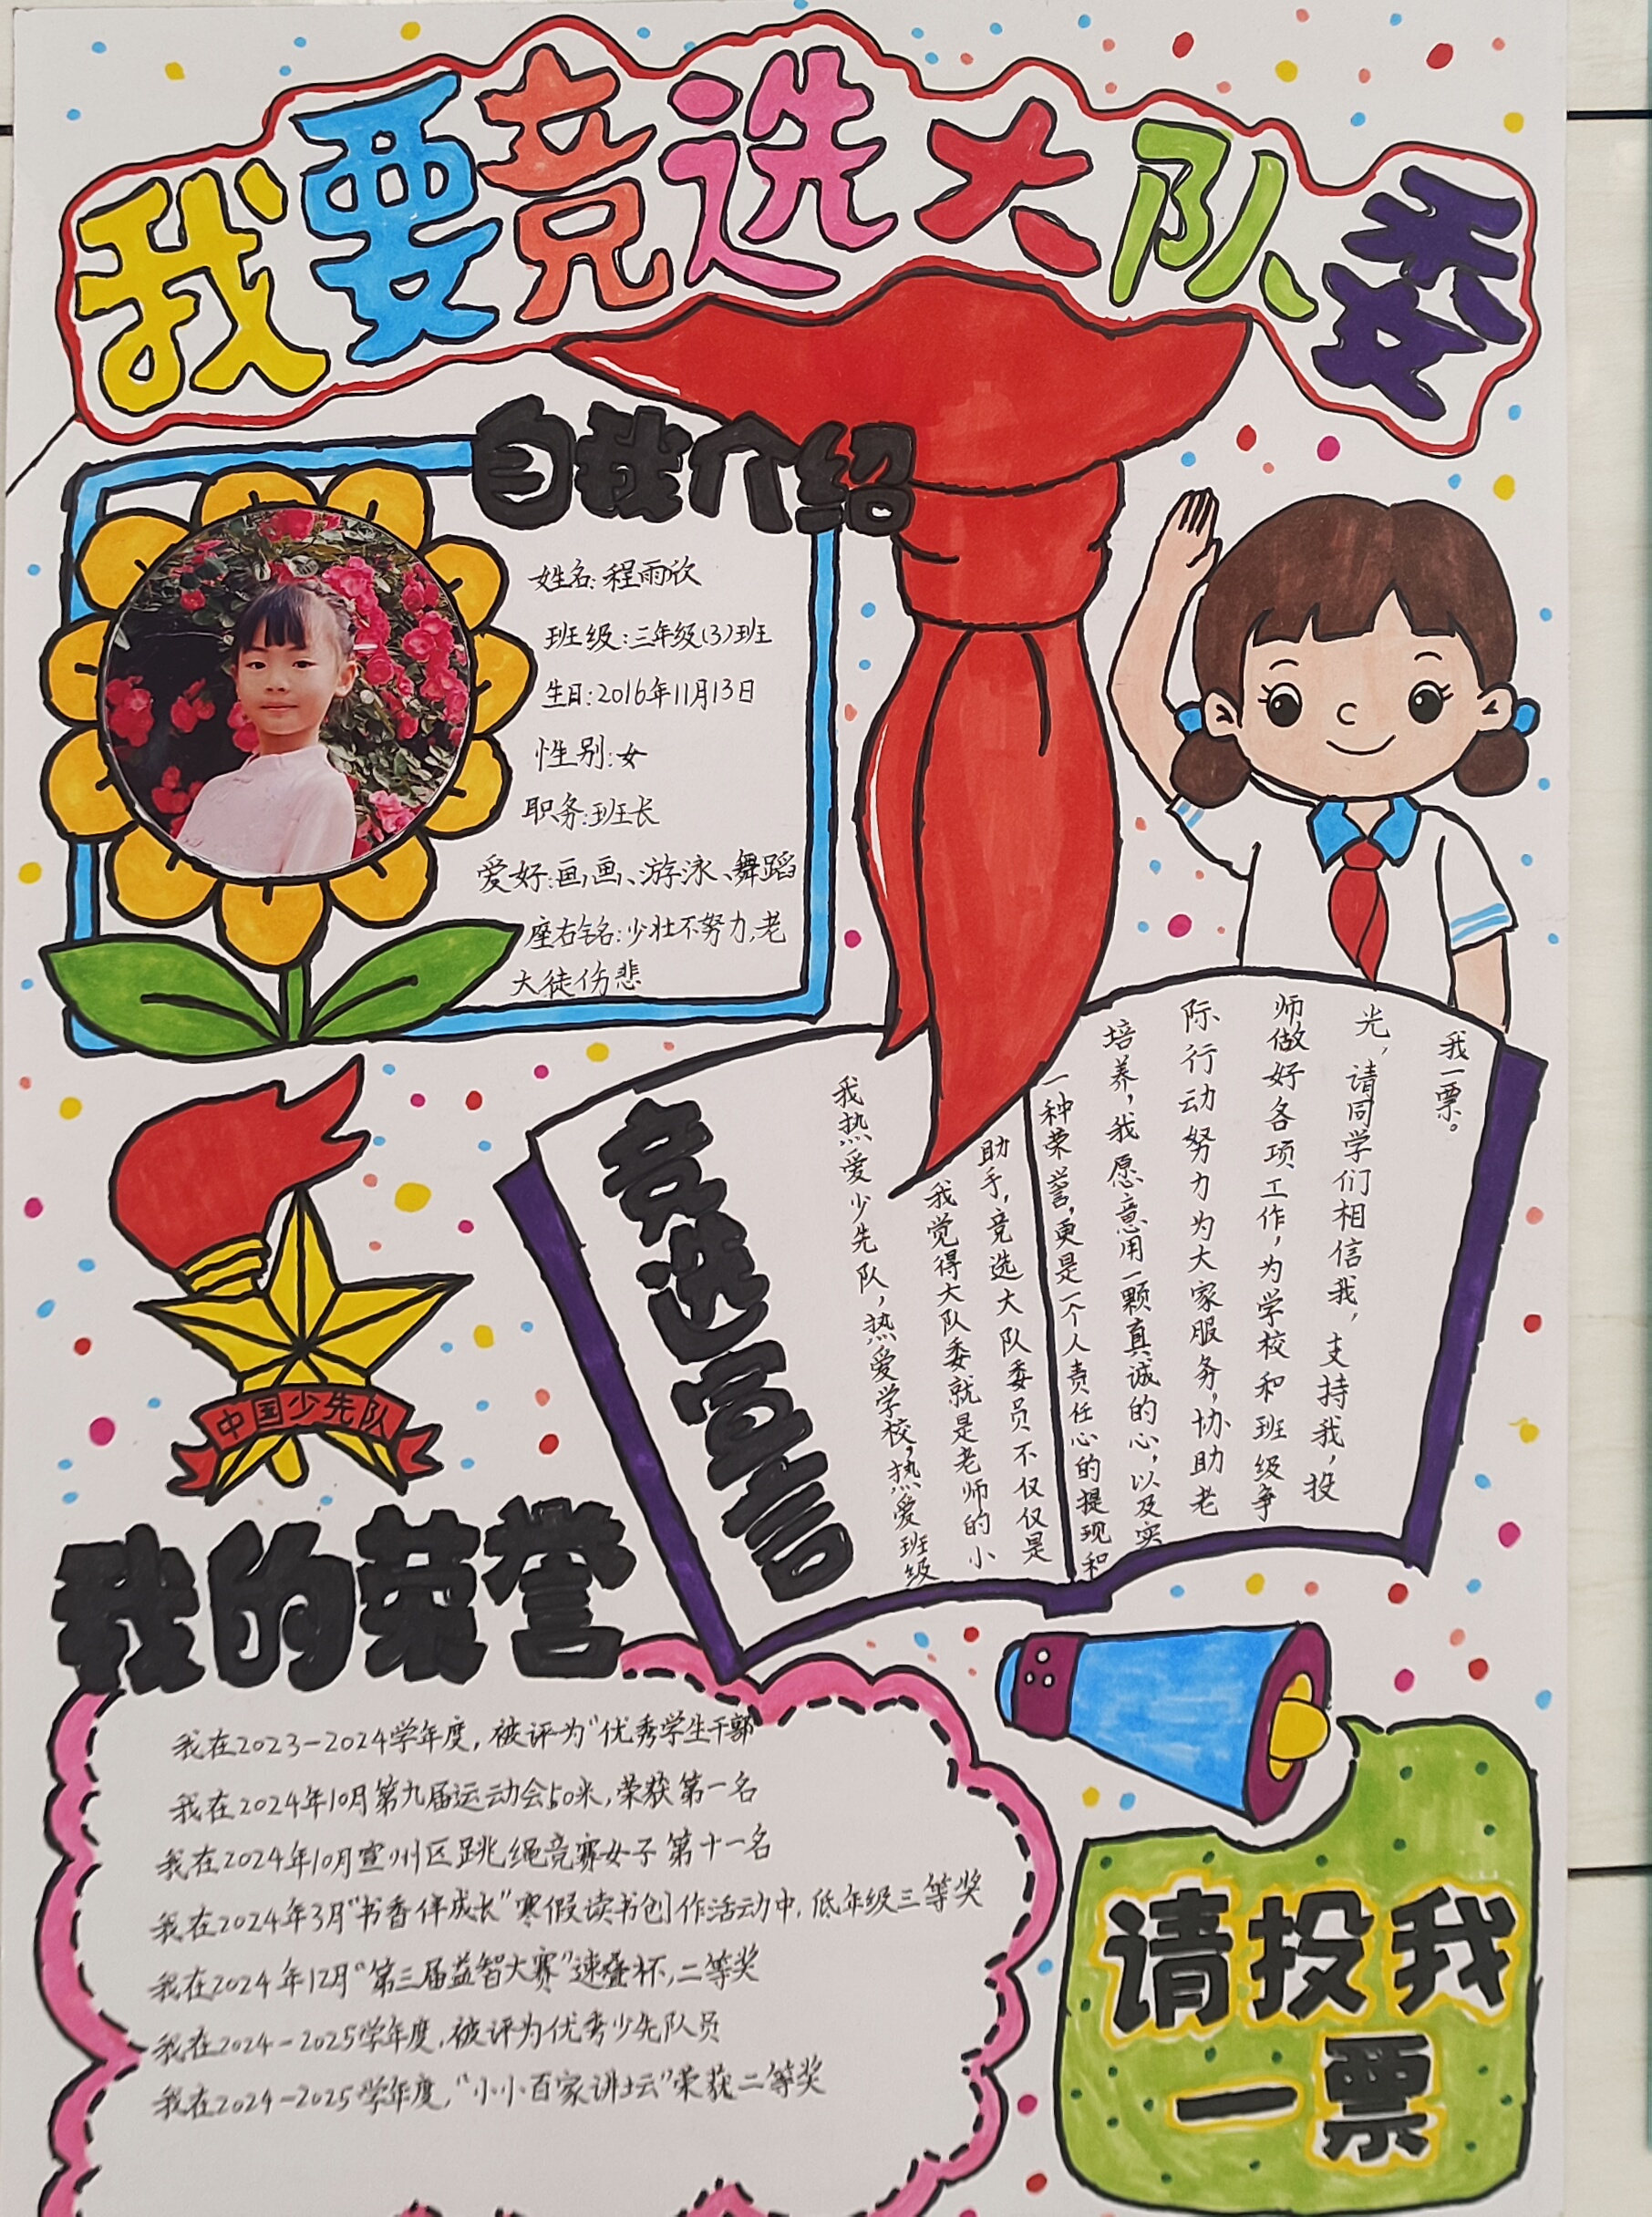 我要竞选大队委
自我介绍
姓名:程雨欣
班级:三年级(3)班
生日:2016年11月13日
性别:女
职务:班长
爱好:画画、游泳、舞蹈
座右铭:少壮不努力,老
大徒伤悲
竞选宣言
我热爱少先队,热爱学校,热爱班级
我觉得大队委就是老师的小
助手,竞选大队委员不仅仅是
一种荣誉,更是一个人责任心的提现和
培养,我愿意用一颗真诚的心,以及实
际行动努力为大家服务,协助老
师做好各项工作,为学校和班级争
光,请同学们相信我,支持我,投
我一票。
中国少先队
我的荣誉
我在2023-2024学年度,被评为"优秀学生干部
我在2024年10月第九届运动会50米,荣获第一名
我在2024年10月宣州区跳绳竞赛女子第十一名
我在2024年3月"书香伴成长"寒假读书创作活动中,低年级三等奖
我在2024年12月"第三届益智大赛"速叠杯,二等奖
我在2024-2025学年度,被评为优秀少先队员
我在2024-2025学年度,"小小百家讲坛"荣获二等奖
请投我
一票